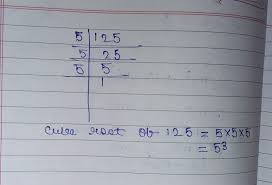 5 | 125
5 | 25
5 | 5
1
Cube root Ob 125 = 5×5×5
= 5³